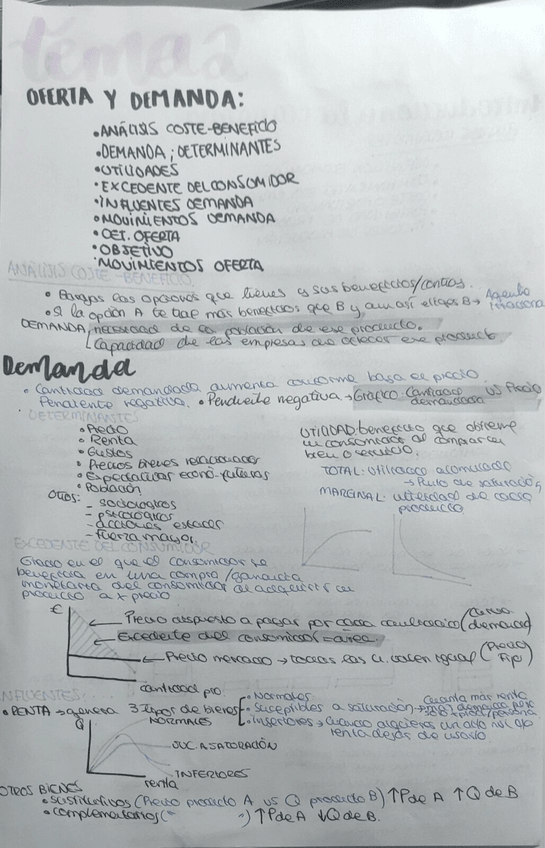 tema 2
OFERTA Y DEMANDA:
• ANÁLISIS COSTE-BENEFICIO
• DEMANDA; DETERMINANTES
• UTILIDADES
• EXCEDENTE DEL CONSUMIDOR
• INFLUENTES DEMANDA
• MOVIMIENTOS DEMANDA
• DET. OFERTA
• OBJETIVO
• MOVIMIENTOS OFERTA
ANÁLISIS COSTE-BENEFICIO
• las opciones que tienes y sus beneficios/contras.
• Si la opción A te trae más beneficios que B y aun así eliges B → Agente irracional
DEMANDA; necesidad de la población de ese producto.
Capacidad de las empresas de ofrecer ese product.
Demanda
• Cantidad demandada aumenta conforme baja el precio.
Pendiente negativa. • Pendiente negativa → Gráfico: Cantidad demandada vs Precio
DETERMINANTES
• Precio
• Renta
• Gustos
• Precios bienes relacionados
• Expectativas econó. futuras
• Población
Otros:
- sociológicos
- psicológicos
- acciones estado
- fuerza mayor
UTILIDAD: beneficio que obtiene
un consumidor al comprar un
bien o servicio.
TOTAL: utilidad acumulada
→ Punto de saturación
MARGINAL: utilidad de cada
producto
EXCEDENTE DEL CONSUMIDOR
Grado en el que el consumidor se
beneficia en una compra/ganancia
monetaria del consumidor al adquirir un
producto a x precio
€
Precio dispuesto a pagar por cada (Curva demanda)
Excedente del consumidor = área
Precio mercado → todas las u. valen igual (Precio Fijo)
cantidad pro.
INFLUENTES
• RENTA → genera 3 tipos de bienes
• Normales
• Suceptibles a saturación → Cuanta más renta
• Inferiores → Cuando un
renta dejas de usarlo
Q
NORMALES
SUC A SATURACIÓN
INFERIORES
renta
OTROS BIENES
• sustitutivos (Precio producto A vs Q producto B) ↑P de A ↑Q de B
• complementarios (" ") ↑P de A ↓Q de B.